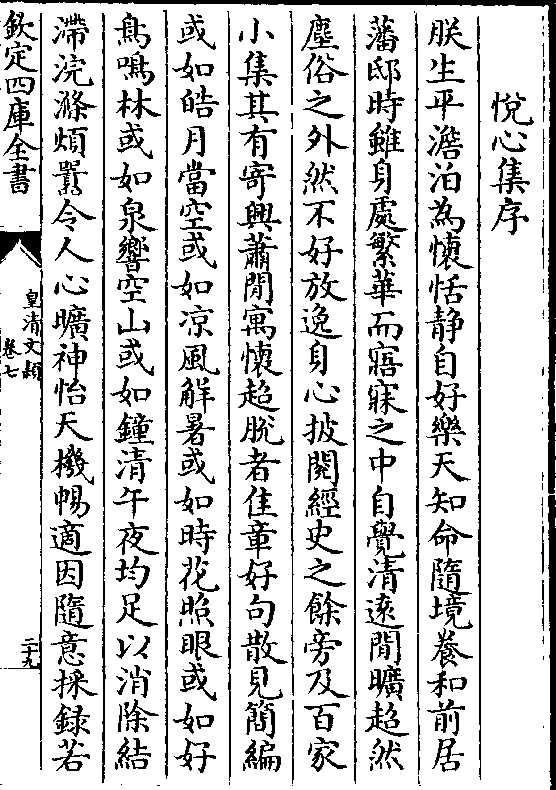 悅心集序
朕生平澹泊為懷恬静自好樂天知命隨境養和前居
藩邸時雖身處繁華而寤寐之中自覺清逺閒曠超然
塵俗之外然不好放逸身心披閱經史之餘旁及百家
小集其有寄興蕭閒寓懷超脫者佳章好句散見簡編
或如皓月當空或如凉風解暑或如時花照眼或如好
鳥鳴林或如泉響空山或如鐘清午夜均足以消除結
滯浣滌煩囂令人心曠神怡天機暢適因隨意採録若
欽定四庫全書
皇清文穎
卷七
二十九